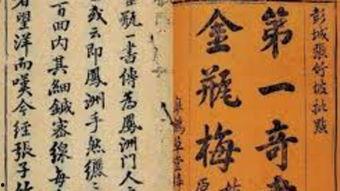 彭城張竹坡批點
第一奇
金瓶梅
金瓶一書傳為鳳洲門人
或云即鳳洲手然纚
百回內其細鍼密線每
者望洋而嘆今經張子竹